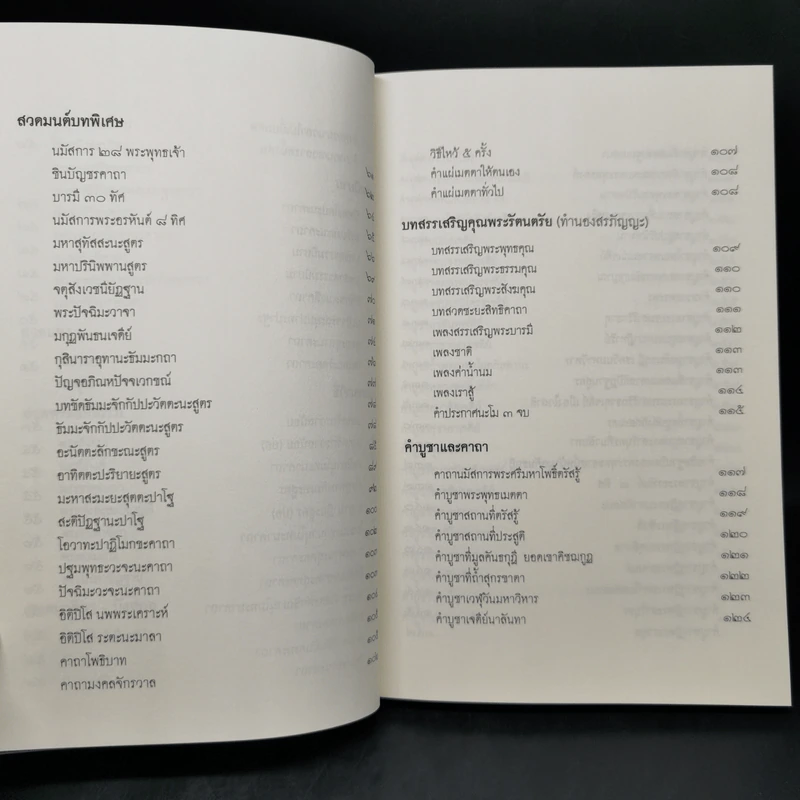 สวดมนต์บทพิเศษ
นมัสการ ๒๘ พระพุทธเจ้า
ชินบัญชรคาถา
บารมี ๓๐ ทัศ
นมัสการพระอรหันต์ ๘ ทิศ
มหาสุทัสสะนะสูตร
มหาปรินิพพานสูตร
จตุสังเวชนียัฏฐาน
พระปัจฉิมะวาจา
มกุฏพันธนเจดีย์
กุสินาราอุทานะธัมมะกถา
ปัญจอภิณหปัจจเวกขณ์
บทขัดธัมมะจักกัปปะวัตตะนะสูตร
ธัมมะจักกัปปะวัตตะนะสูตร
อะนัตตะลักขะณะสูตร
อาทิตตะปะริยายะสูตร
มะหาสะมะยะสุตตะปาโฐ
สะติปัฏฐานะปาโฐ
โอวาทะปาฏิโมกขะคาถา
ปฐมพุทธะวะจะนะคาถา
ปัจฉิมะวะจะนะคาถา
อิติปิโส นพพระเคราะห์
อิติปิโส ระตะนะมาลา
คาถาโพธิบาท
คาถามงคลจักรวาล
วิธีไหว้ ๕ ครั้ง ๑๐๗
คำแผ่เมตตาให้ตนเอง ๑๐๘
คำแผ่เมตตาทั่วไป ๑๐๘
บทสรรเสริญคุณพระรัตนตรัย (ทำนองสรภัญญะ)
บทสรรเสริญพระพุทธคุณ ๑๐๙
บทสรรเสริญพระธรรมคุณ ๑๑๐
บทสรรเสริญพระสังฆคุณ ๑๑๐
บทสวดชะยะสิทธิคาถา ๑๑๑
เพลงสรรเสริญพระบารมี ๑๑๒
เพลงชาติ ๑๑๓
เพลงค่าน้ำนม ๑๑๓
เพลงเราสู้ ๑๑๔
คำประกาศนะโม ๓ จบ ๑๑๕
คำบูชาและคาถา
คาถานมัสการพระศรีมหาโพธิ์ตรัสรู้ ๑๑๗
คำบูชาพระพุทธเมตตา ๑๑๘
คำบูชาสถานที่ตรัสรู้ ๑๑๙
คำบูชาสถานที่ประสูติ ๑๒๐
คำบูชาที่มูลคันธกุฎี ยอดเขาคิชฌกูฏ ๑๒๑
คำบูชาที่ถ้ำสุกรขาตา ๑๒๒
คำบูชาเวฬุวันมหาวิหาร ๑๒๓
คำบูชาเจดีย์นาลันทา ๑๒๔